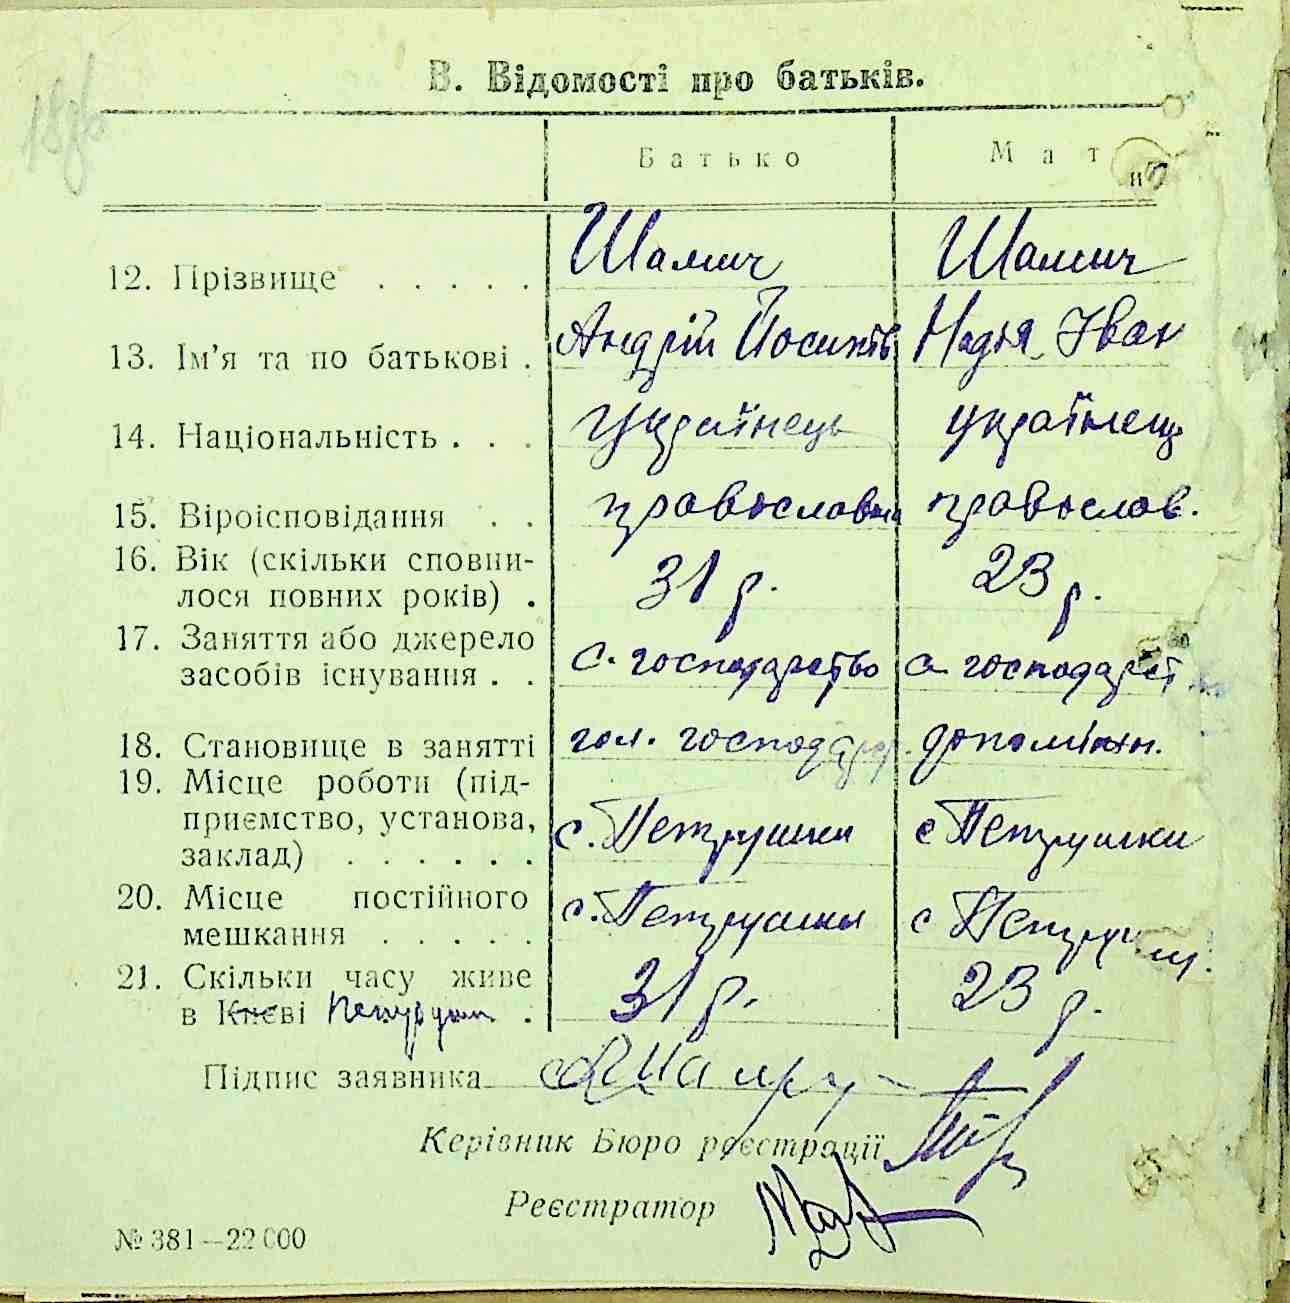 В. Відомості про батьків.
Батько Мати
12. Прізвище . . . . . Шамич Шамич
13. Ім’я та по батькові . Андрій Йосипів Надія Іван
14. Національність . . . українець українець
15. Віроісповідання . . православна православ.
16. Вік (скільки сповни-
лося повних років) . 31 р. 23 р.
17. Заняття або джерело
засобів існування . . с. господарство с. господарст
18. Становище в занятті гол. господар. допоміжн.
19. Місце роботи (під-
приємство, установа,
заклад) . . . . . . с. Петрушки с Петрушки
20. Місце постійного
мешкання . . . . . с. Петрушки с Петруш.
21. Скільки часу живе
в Києві Петрушк . 31 р. 23 р.
Підпис заявника
Керівник Бюро реєстрації
Реєстратор
№ 381—22000